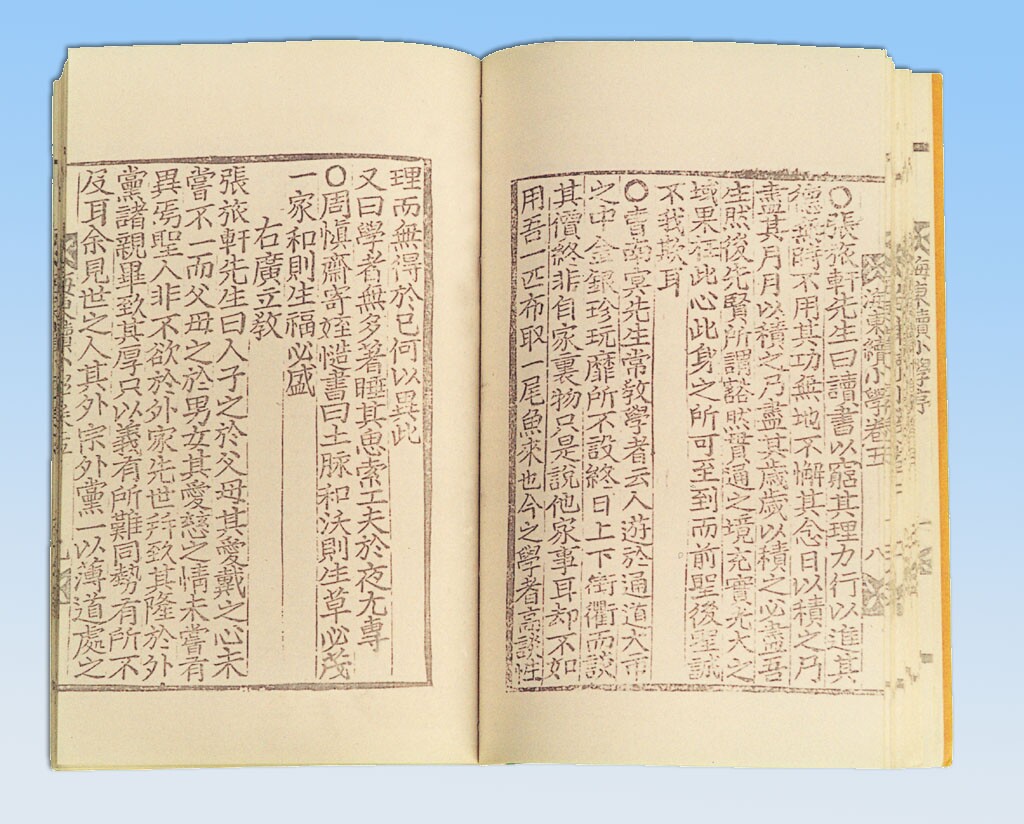 海東續小學序
海東續小學卷五
八
○張旅軒先生曰讀書以窮其理力行以進其
德無時不用其功無地不懈其念日以積之乃
盡其月月以積之乃盡其歲歲以積之必盡吾
生然後先賢所謂豁然貫通之境充實光大之
域果在此心此身之所可至到而前聖後聖誠
不我欺耳
○曹南冥先生常敎學者云人遊於通道大市
之中金銀珍玩靡所不設終日上下街衢而談
其價終非自家裏物只是說他家事耳却不如
用吾一匹布取一尾魚來也今之學者高談性
理而無得於己何以異此
又曰學者無多著睡其思索工夫於夜尤專
○周愼齋寄姪 書曰土脉和沃則生草必茂
一家和則生福必盛
右廣立敎
張旅軒先生曰人子之於父母其愛戴之心未
嘗不一而父母之於男女其愛慈之情未嘗有
異焉聖人非不欲於外家先世幷致其隆於外
黨諸親畢致其厚只以義有所難同勢有所不
及耳余見世之人其外宗外黨一以薄道處之